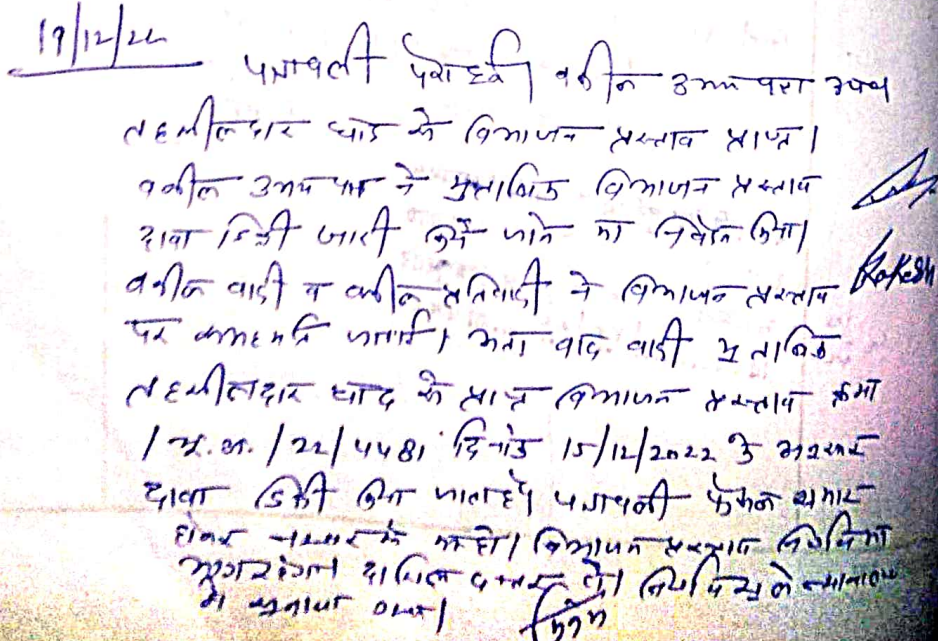 19/12/22
पत्रावली पेश हुई। वकील उभय पक्ष उप०
तहसीलदार चाद से विभाजन प्रस्ताव प्राप्त।
वकील उभय पक्ष ने मुताबिक विभाजन प्रस्ताव
दावा डिक्री जारी किये जाने का निवेदन किया।
वकील वादी व वकील प्रतिवादी ने विभाजन प्रस्ताव
Rakesh
पर सहमति जताई। अतः वाद वादी मुताबिक
तहसीलदार चाद से प्राप्त विभाजन प्रस्ताव क्रमां
/भू.अ./22/4481 दिनांक 15/12/2022 के अनुसार
दावा डिक्री किया जाता है। पत्रावली फैसल शुमार
होकर नम्बर से कम हो। विभाजन प्रस्ताव निर्णय का
दाखिल दफ्तर हो। निर्णय न्यायालय
में सुनाया गया।